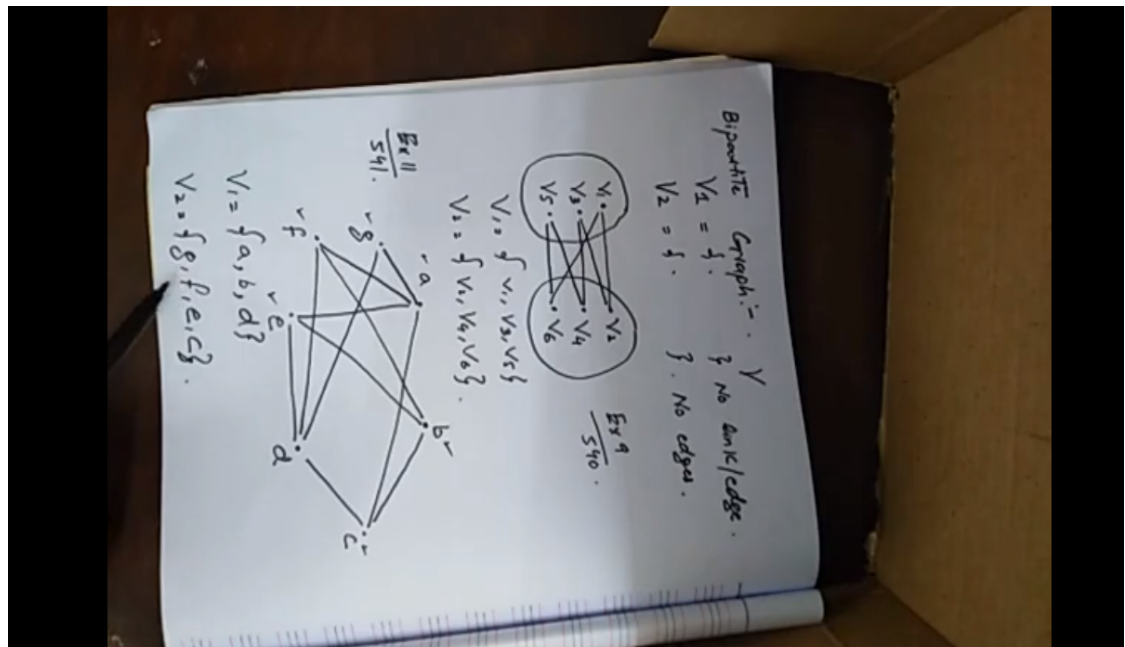 Bipartite Graph:- . V
V1 = { . } No link/edge .
V2 = { . } . No edges .
Ex 9
540 .
V1 V2
V3 V4
V5 V6
V1 = { V1, V3, V5}
V2 = { V2, V4, V6} .
Ex 11
541.
a b
g c
f d
e
V1 = { a, b, d}
V2 = { g, f, e, c} .